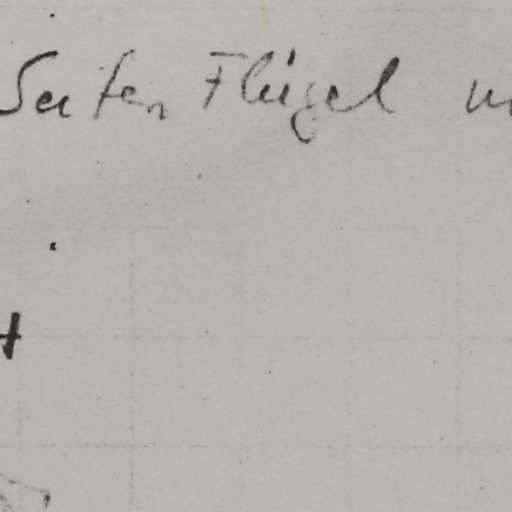 Seiten Flügel